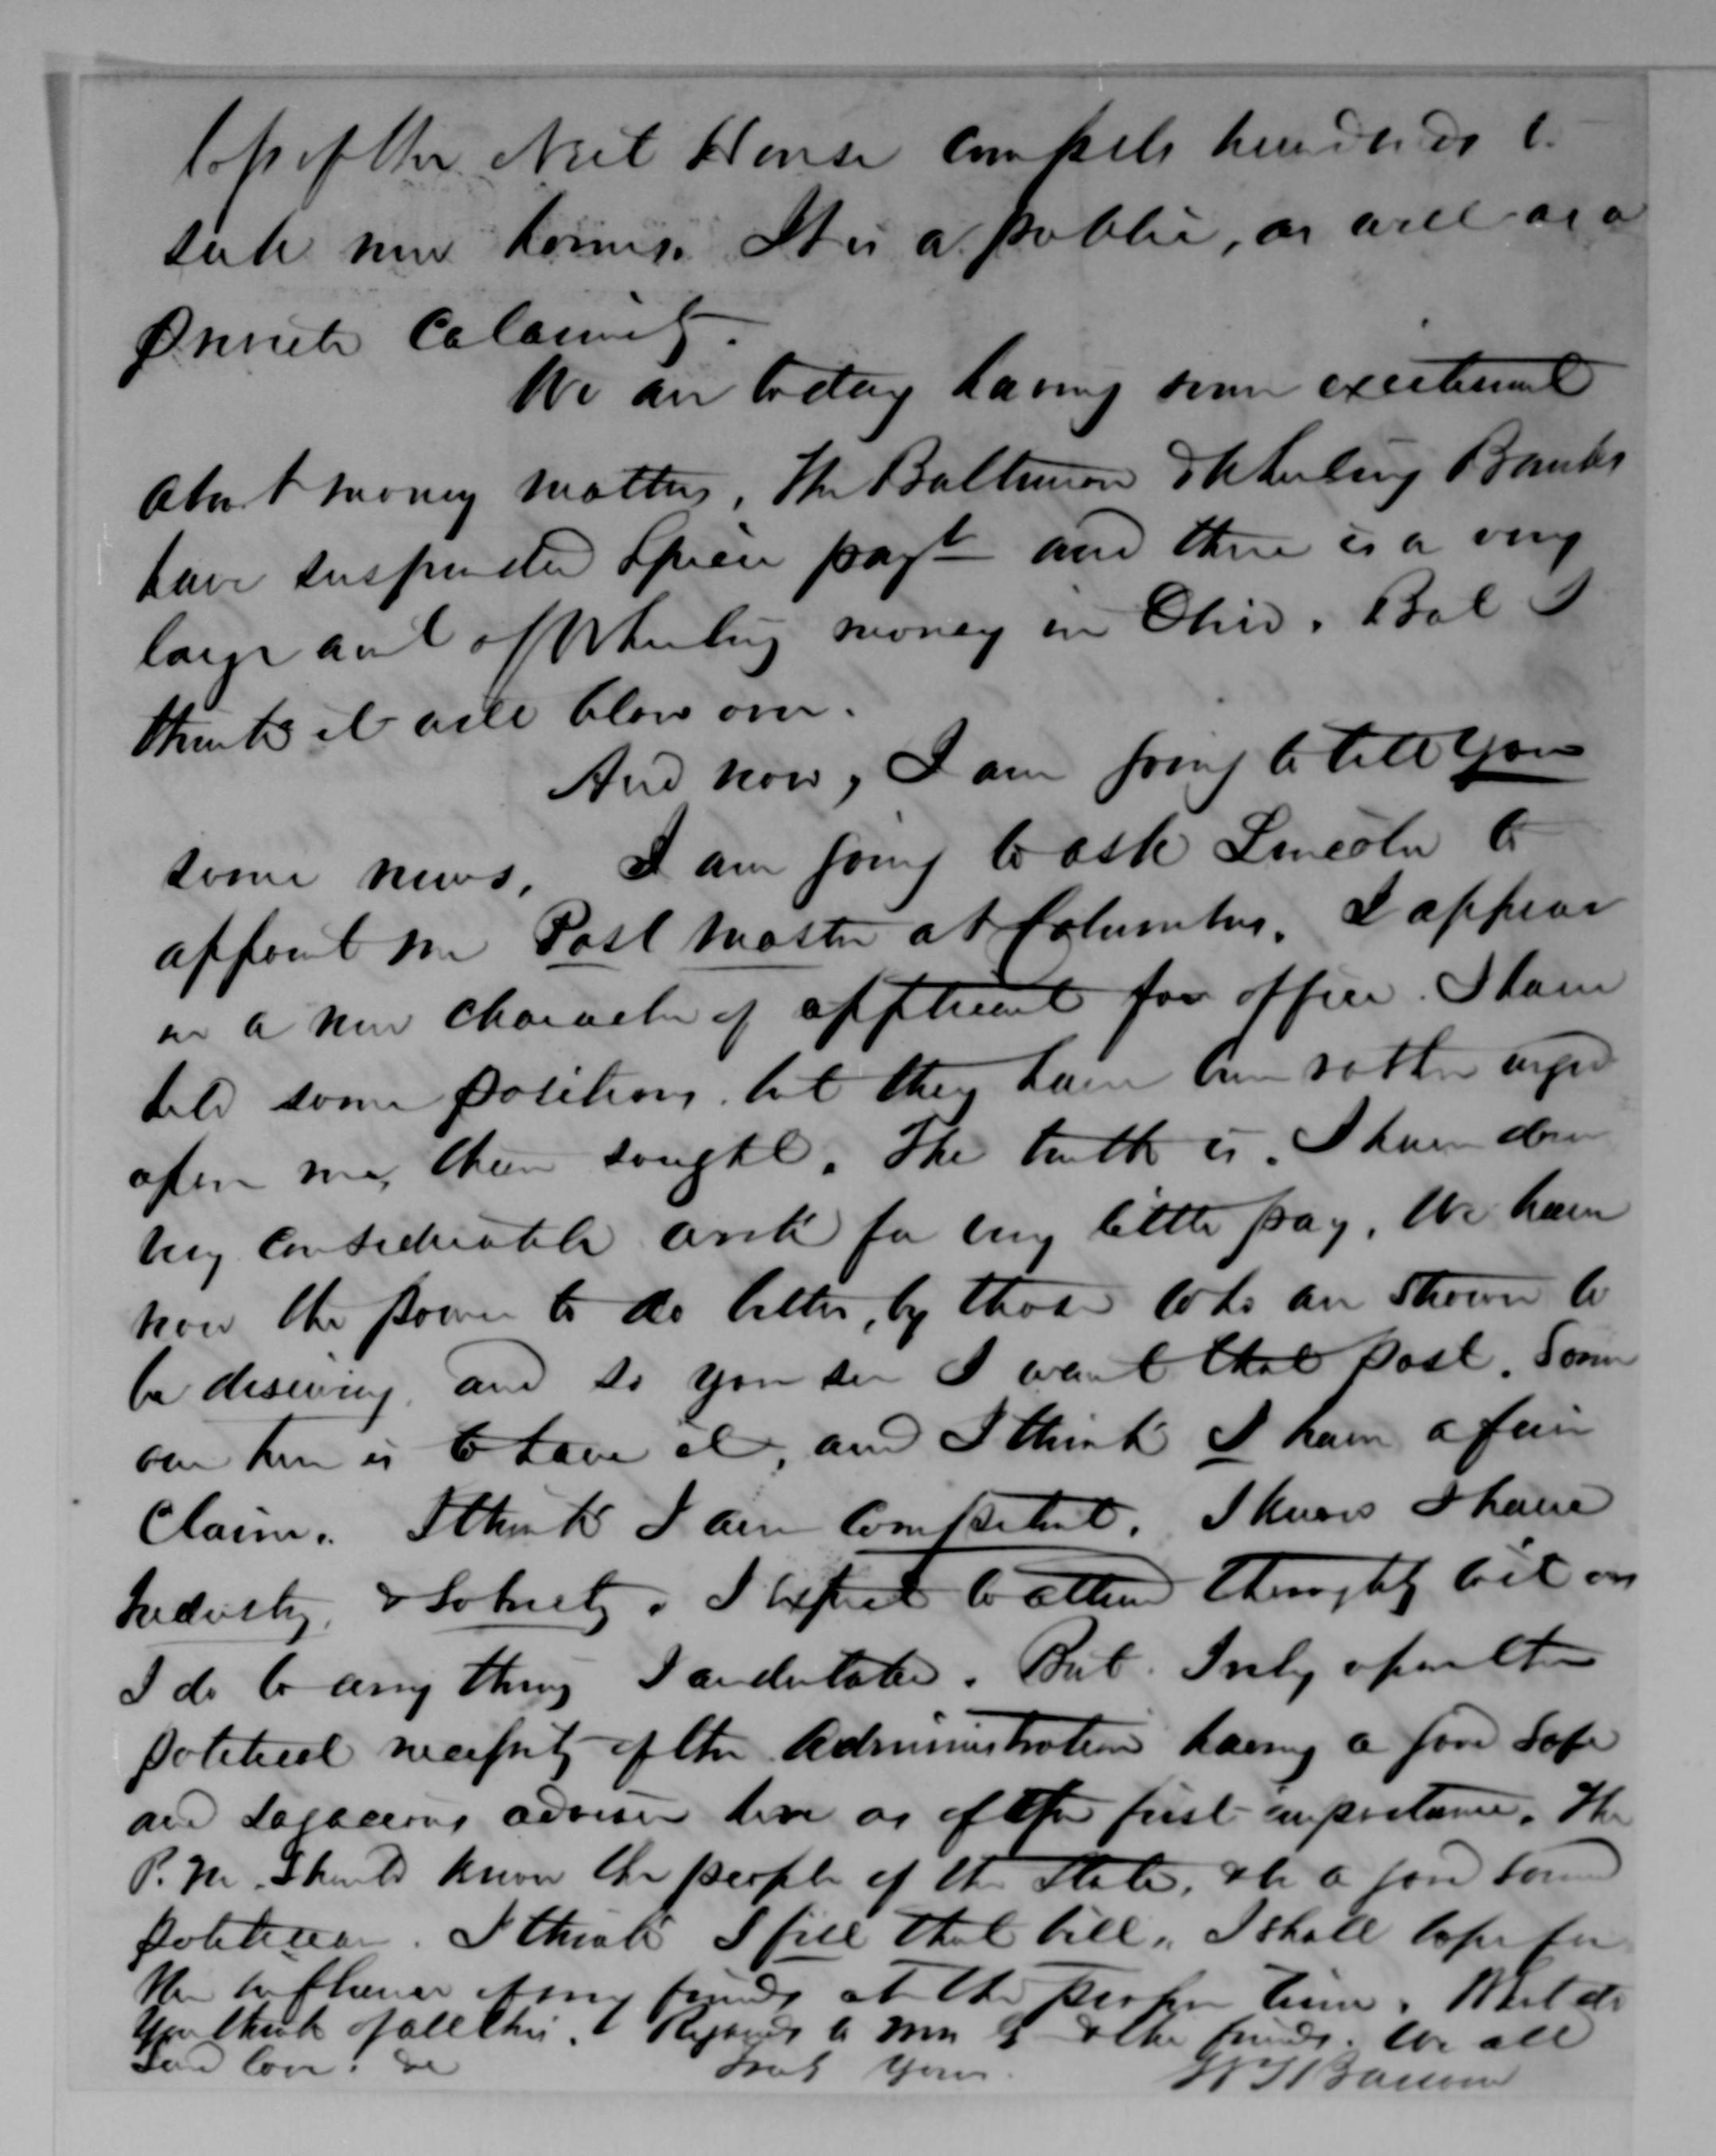 loss of the Neil House compels hundreds to
seek new homes. It is a public, as well as a
Private Calamity.
We are today having some excitement
about money matters, The Baltimore & Wheeling Banks
have suspended Specie payt and there is a very
large amt of Wheeling money in Ohio. But I
think it will blow over.
And now, I am going to tell you
some news, I am going to ask Lincoln to
appoint me Post Master at Columbus. I appear
in a new character of applicant for office. I have
held some positions, but they have been rather urged
upon me, than sought. The truth is, I have done
very considerable work for very little pay. We have
now the power to do better, by those who are shown to
be deserving, and so you see I want that post. Some
one here is to have it, and I think I have a fair
Claim. I think I am competent. I know I have
Industry, & Sobriety. I expect to attend thoroughly to it as
I do to any thing I undertake. But I rely upon the
political necessity of the Administration having a good safe
and sagacious adviser here as of the first importance. The
P.M. should know the people of the State, & be a good sound
politician. I think I fill that bill. I shall hope for
the influence of my friends at the proper time. What do
you think of all this. Regards to Mrs G & other friends. We all
send love. &c Truly Yours. W T Bascom